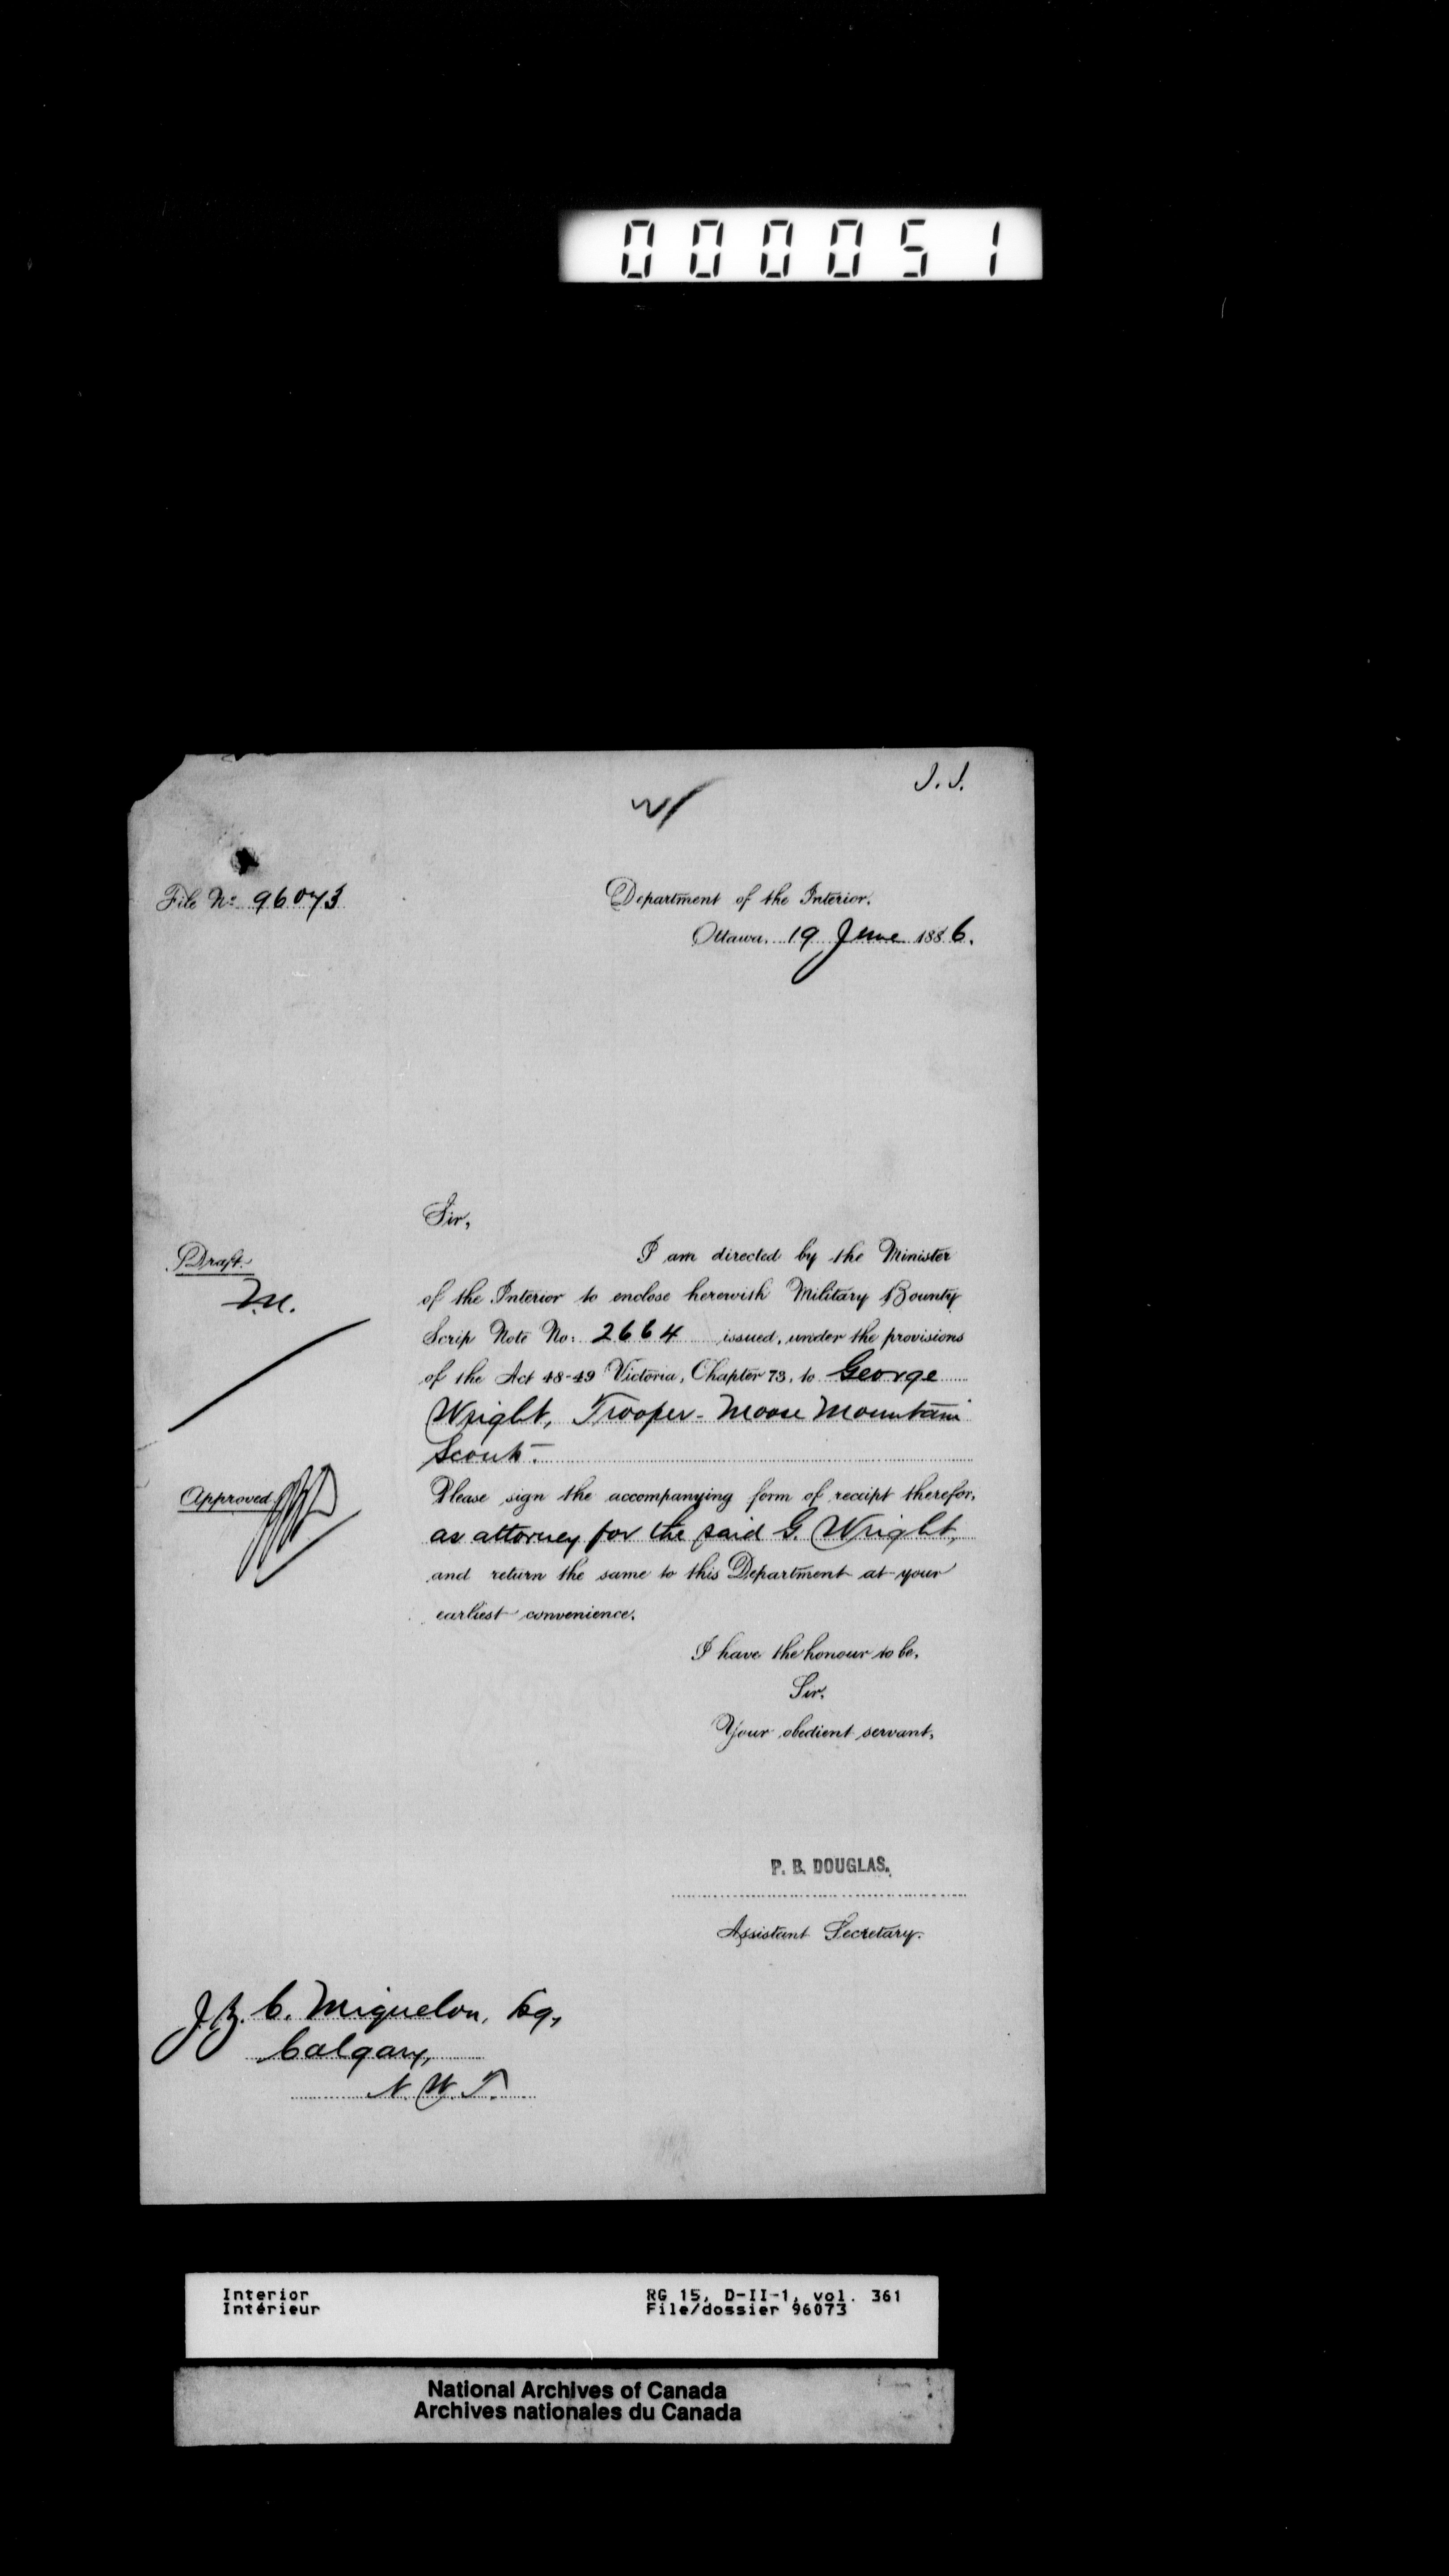 000051
J. J.
File No. 96073
Department of the Interior.
Ottawa, 19 June 1886.
Sir,
I am directed by the Minister
Draft.
M.
of the Interior to enclose herewith Military Bounty
Scrip Note No: 2664 issued, under the provisions
of the Act 48-49 Victoria, Chapter 73, to George
Wright, Trooper - Moose Mountain
Scouts.
Approved
Please sign the accompanying form of receipt therefor,
as attorney for the said G. Wright,
and return the same to this Department at your
earliest convenience.
I have the honour to be,
Sir,
Your obedient servant,
P. B. DOUGLAS.
Assistant Secretary.
J. Z. C. Miquelon, Esq,
Calgary,
N. W. T.
Interior
Intérieur
RG 15, D-II-1, vol. 361
File/dossier 96073
National Archives of Canada
Archives nationales du Canada